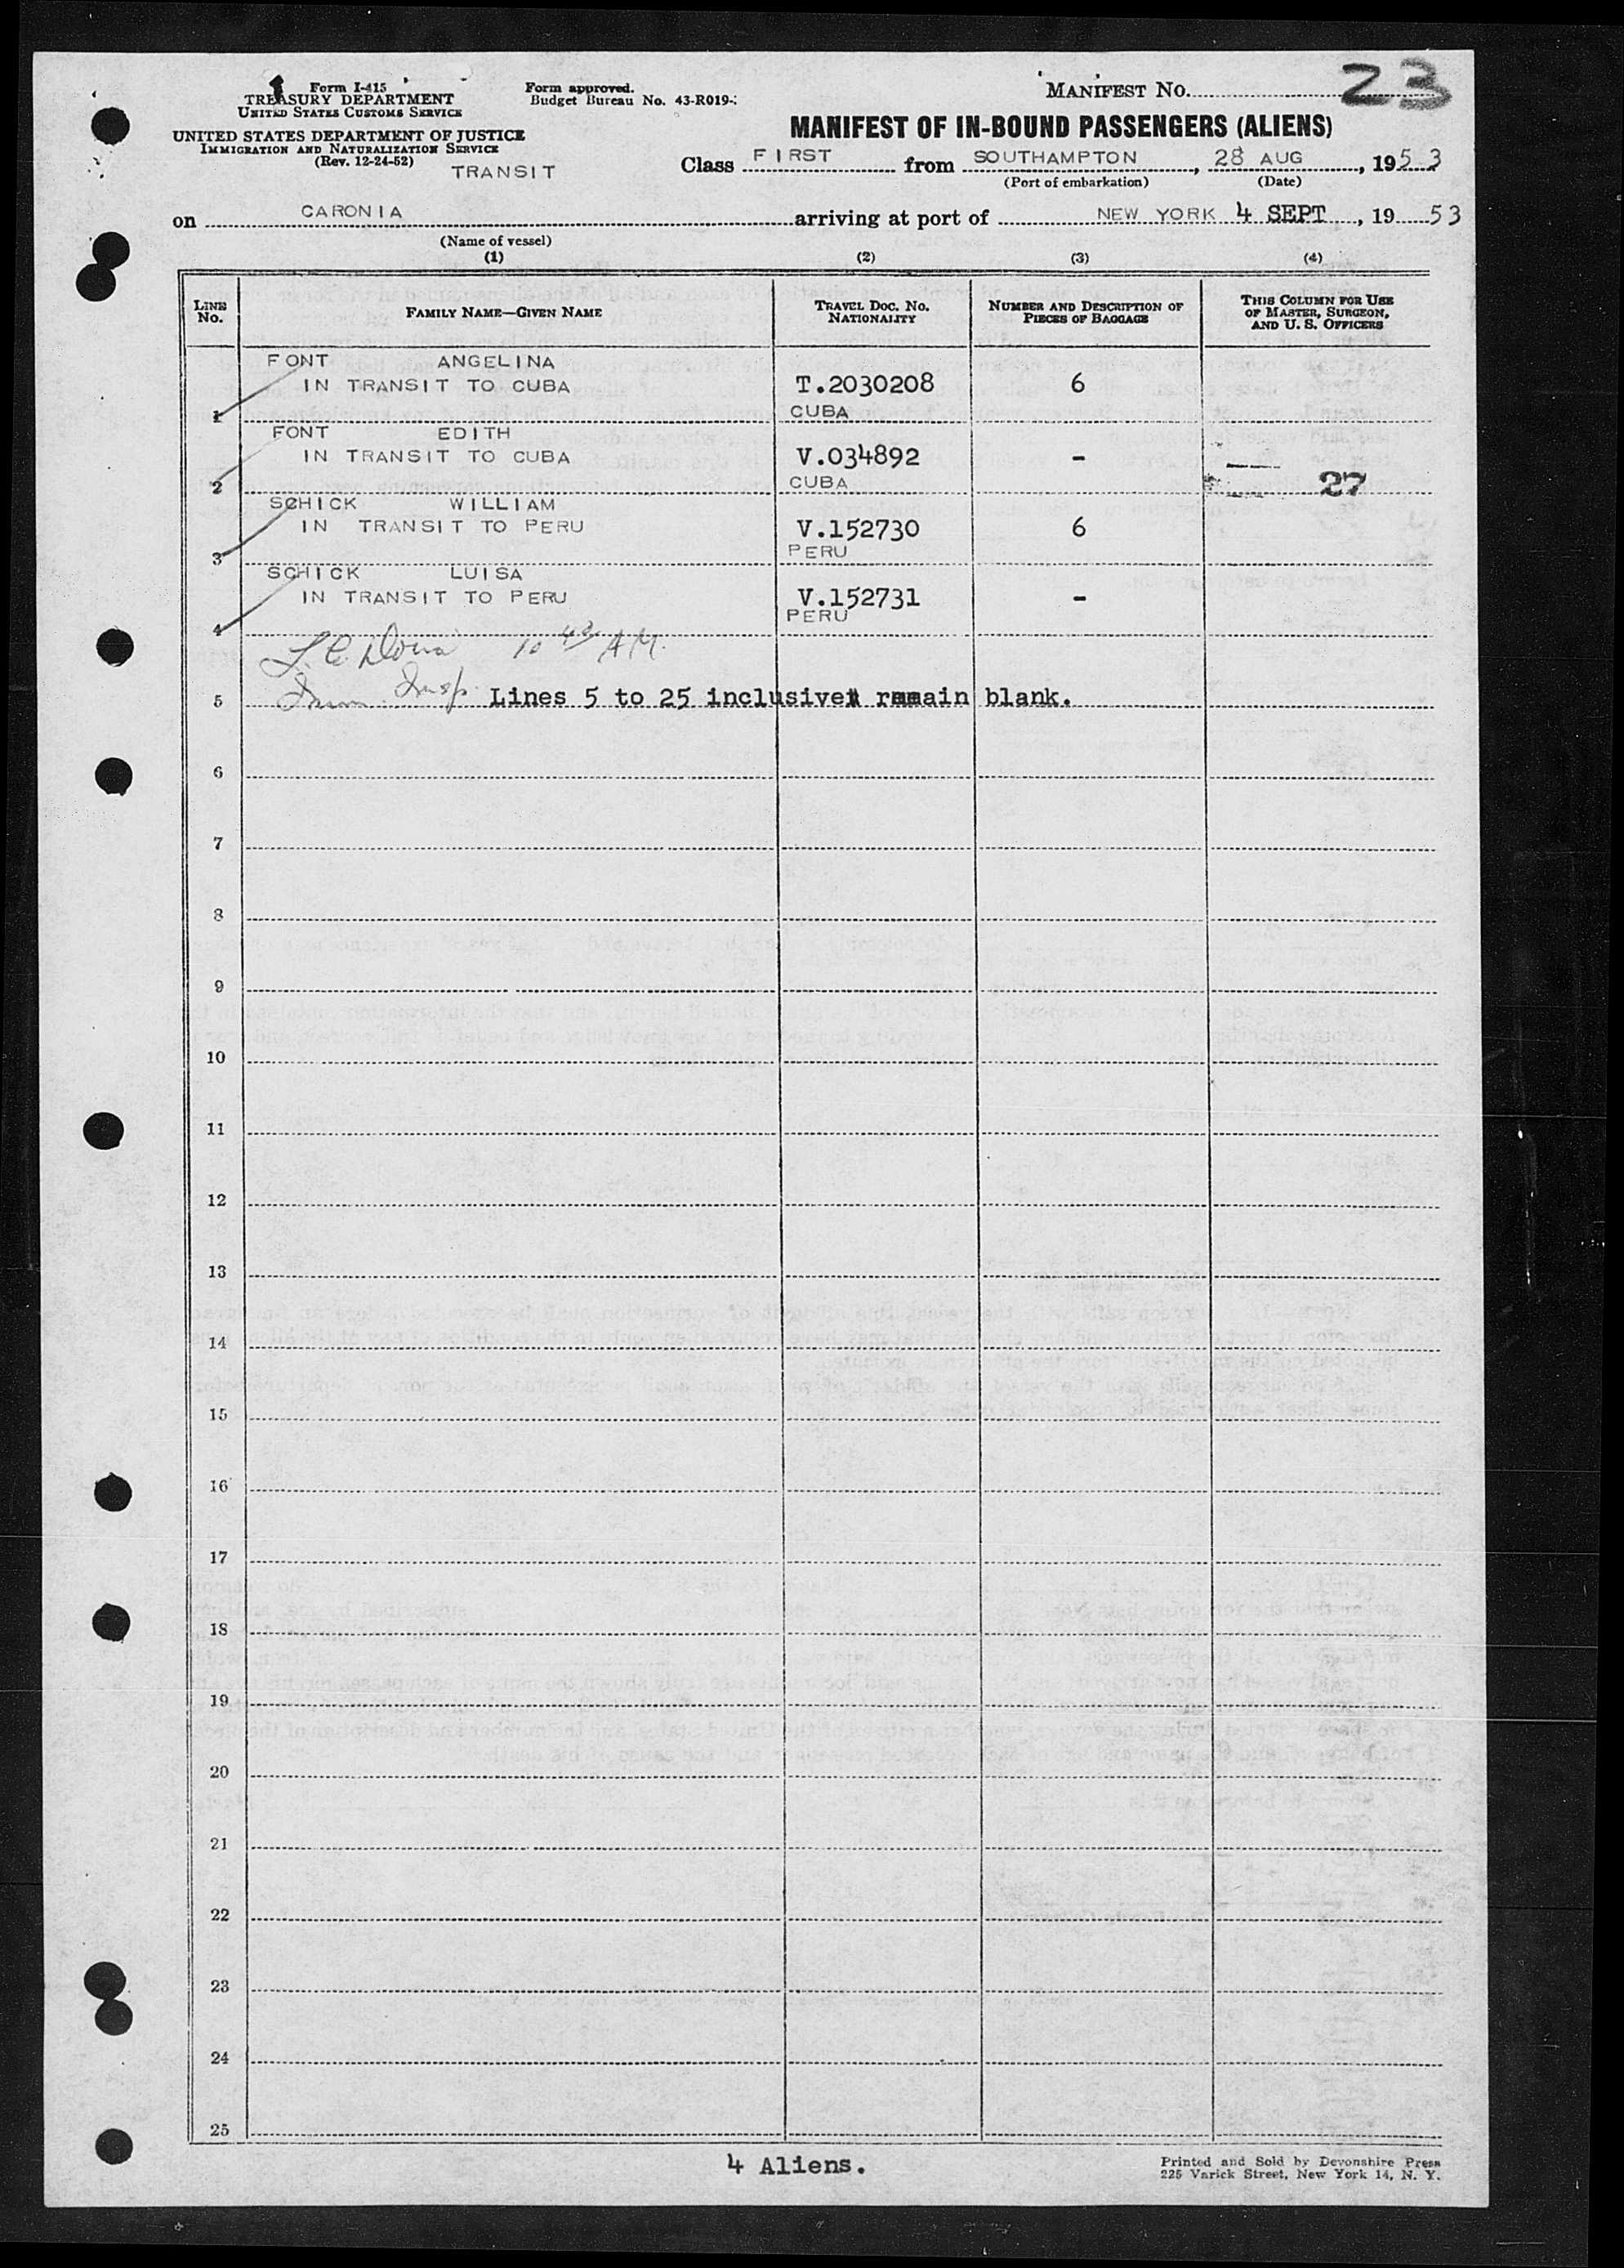 Form I-415
TREASURY DEPARTMENT
UNITED STATES CUSTOMS SERVICE
UNITED STATES DEPARTMENT OF JUSTICE
IMMIGRATION AND NATURALIZATION SERVICE
(Rev. 12-24-52)
TRANSIT
Form approved.
Budget Bureau No. 43-R019-
MANIFEST No. 23
MANIFEST OF IN-BOUND PASSENGERS (ALIENS)
Class FIRST from SOUTHAMPTON, 28 AUG, 1953
(Port of embarkation) (Date)
on CARONIA arriving at port of NEW YORK 4 SEPT, 19 53
(Name of vessel)
(1) (2) (3) (4)
LINE No. FAMILY NAME—GIVEN NAME TRAVEL DOC. NO. NATIONALITY NUMBER AND DESCRIPTION OF PIECES OF BAGGAGE THIS COLUMN FOR USE OF MASTER, SURGEON, AND U. S. OFFICERS
FONT ANGELINA
IN TRANSIT TO CUBA T.2030208 6
1 CUBA
FONT EDITH
IN TRANSIT TO CUBA V.034892 -
2 CUBA 27
SCHICK WILLIAM
IN TRANSIT TO PERU V.152730 6
3 PERU
SCHICK LUISA
IN TRANSIT TO PERU V.152731 -
4 PERU
A.M.
5 Imm. Insp. Lines 5 to 25 inclusive remain blank.
6
7
8
9
10
11
12
13
14
15
16
17
18
19
20
21
22
23
24
25
4 Aliens.
Printed and Sold by Devonshire Press
225 Varick Street, New York 14, N. Y.